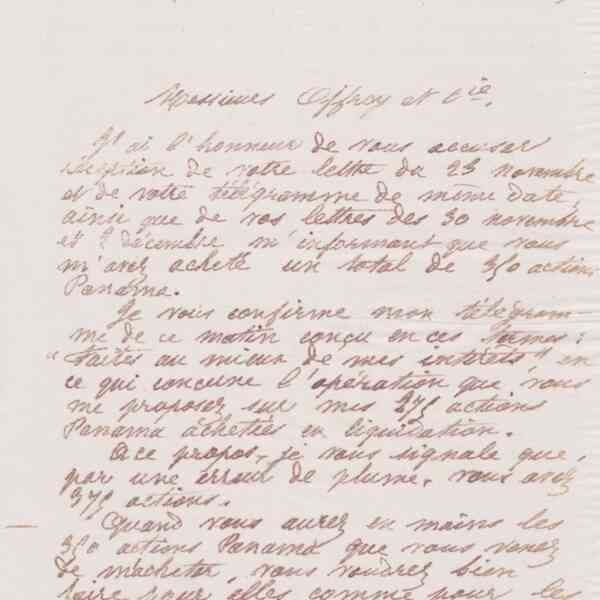 Messieurs Offroy et Cie.
J'ai l'honneur de vous accuser
réception de votre lettre du 23 novembre
et de votre télégramme de même date,
ainsi que de vos lettres des 30 novembre
et 2 décembre m'informant que vous
m'avez acheté un total de 350 actions
Panama.
Je vous confirme mon télégram-
me de ce matin conçu en ces termes :
"Faites au mieux de mes intérêts" en
ce qui concerne l'opération que vous
me proposez sur mes 275 actions
Panama achetées en liquidation.
A ce propos, je vous signale que,
par une erreur de plume, vous avez
375 actions.
Quand vous aurez en mains les
350 actions Panama que vous venez
de m'acheter, vous voudrez bien
faire pour elles comme pour les